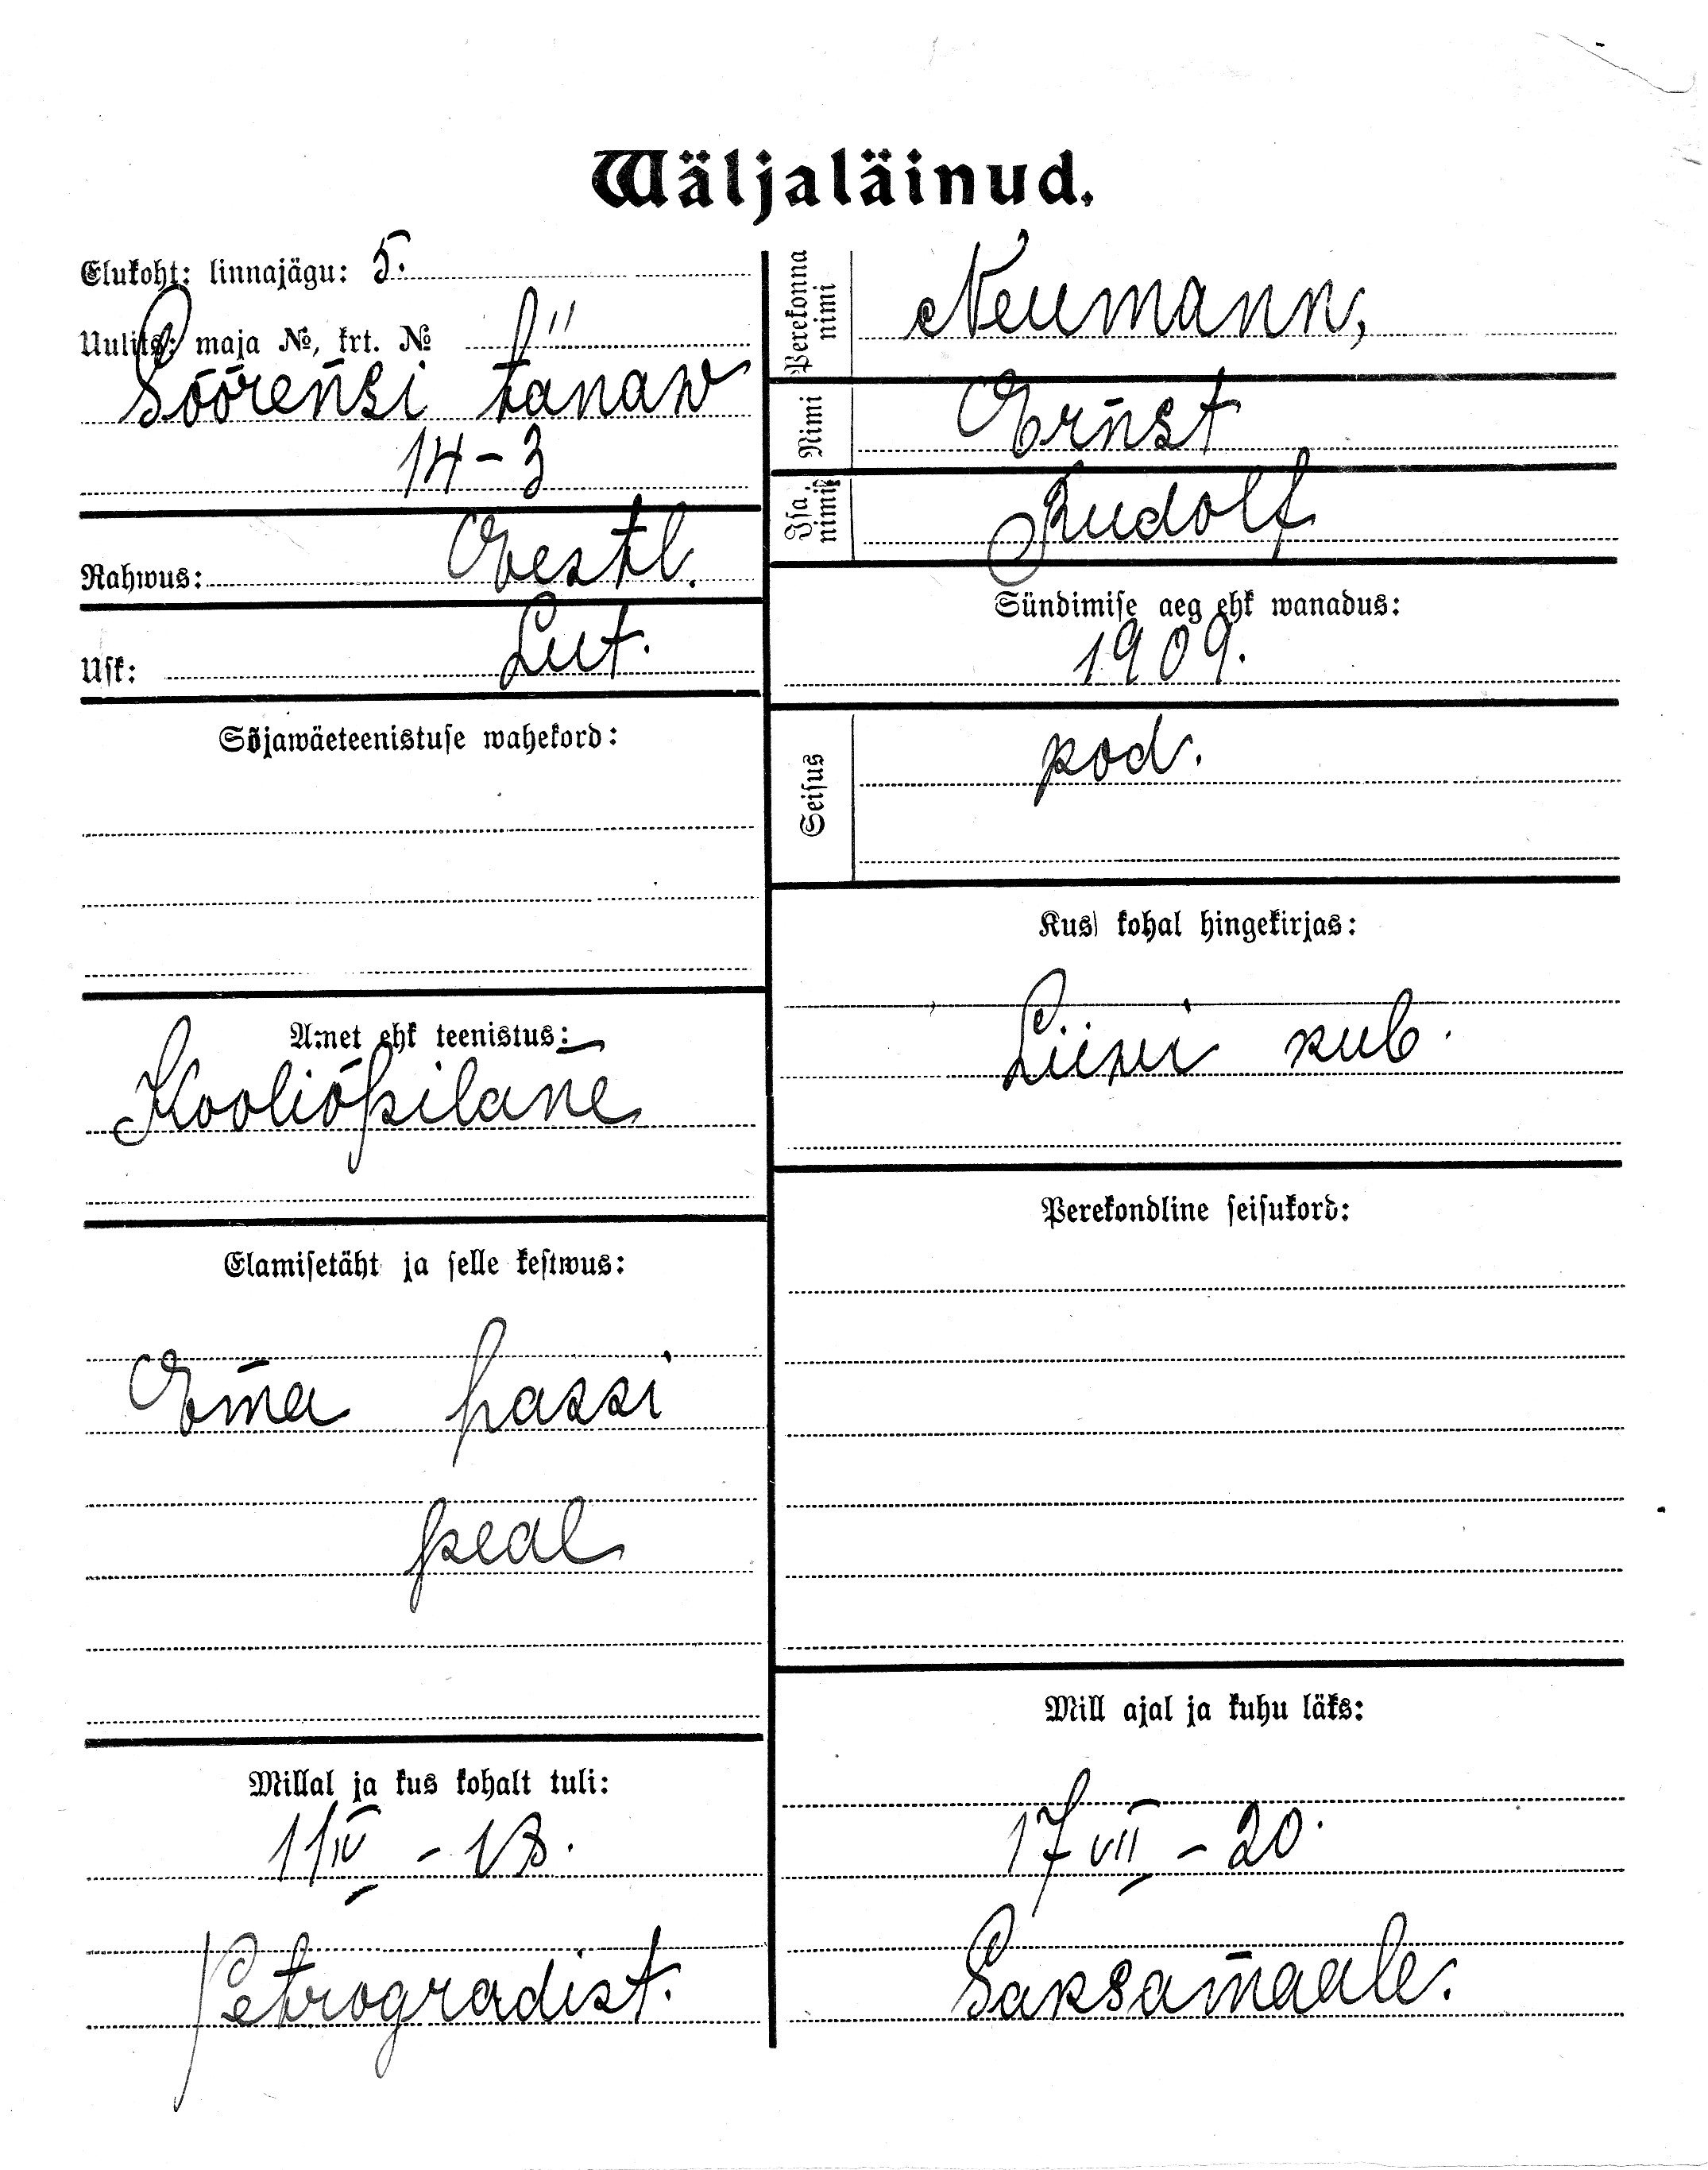 Wäljaläinud.
Elukoht: linnajägu: 5.
Uulits: maja №, krt. №
Söörensi tänaw
14-3
Rahwus: Eestl.
Usk: Lut.
Sõjawäeteenistuse wahekord:
Amet ehk teenistus:
Kooliõpilane
Elamisetäht ja selle kestwus:
Ema passi
peal
Millal ja kus kohalt tuli:
11 IV - 18.
Petrogradist.
Perekonna nimi Neumann,
Nimi Ernst
Isa nimi Rudolf
Sündimise aeg ehk wanadus:
1909.
Seisus pod.
Kus kohal hingekirjas:
Liiwi kub.
Perekondline seisukord:
Mill ajal ja kuhu läks:
17 VII - 20.
Saksamaale.